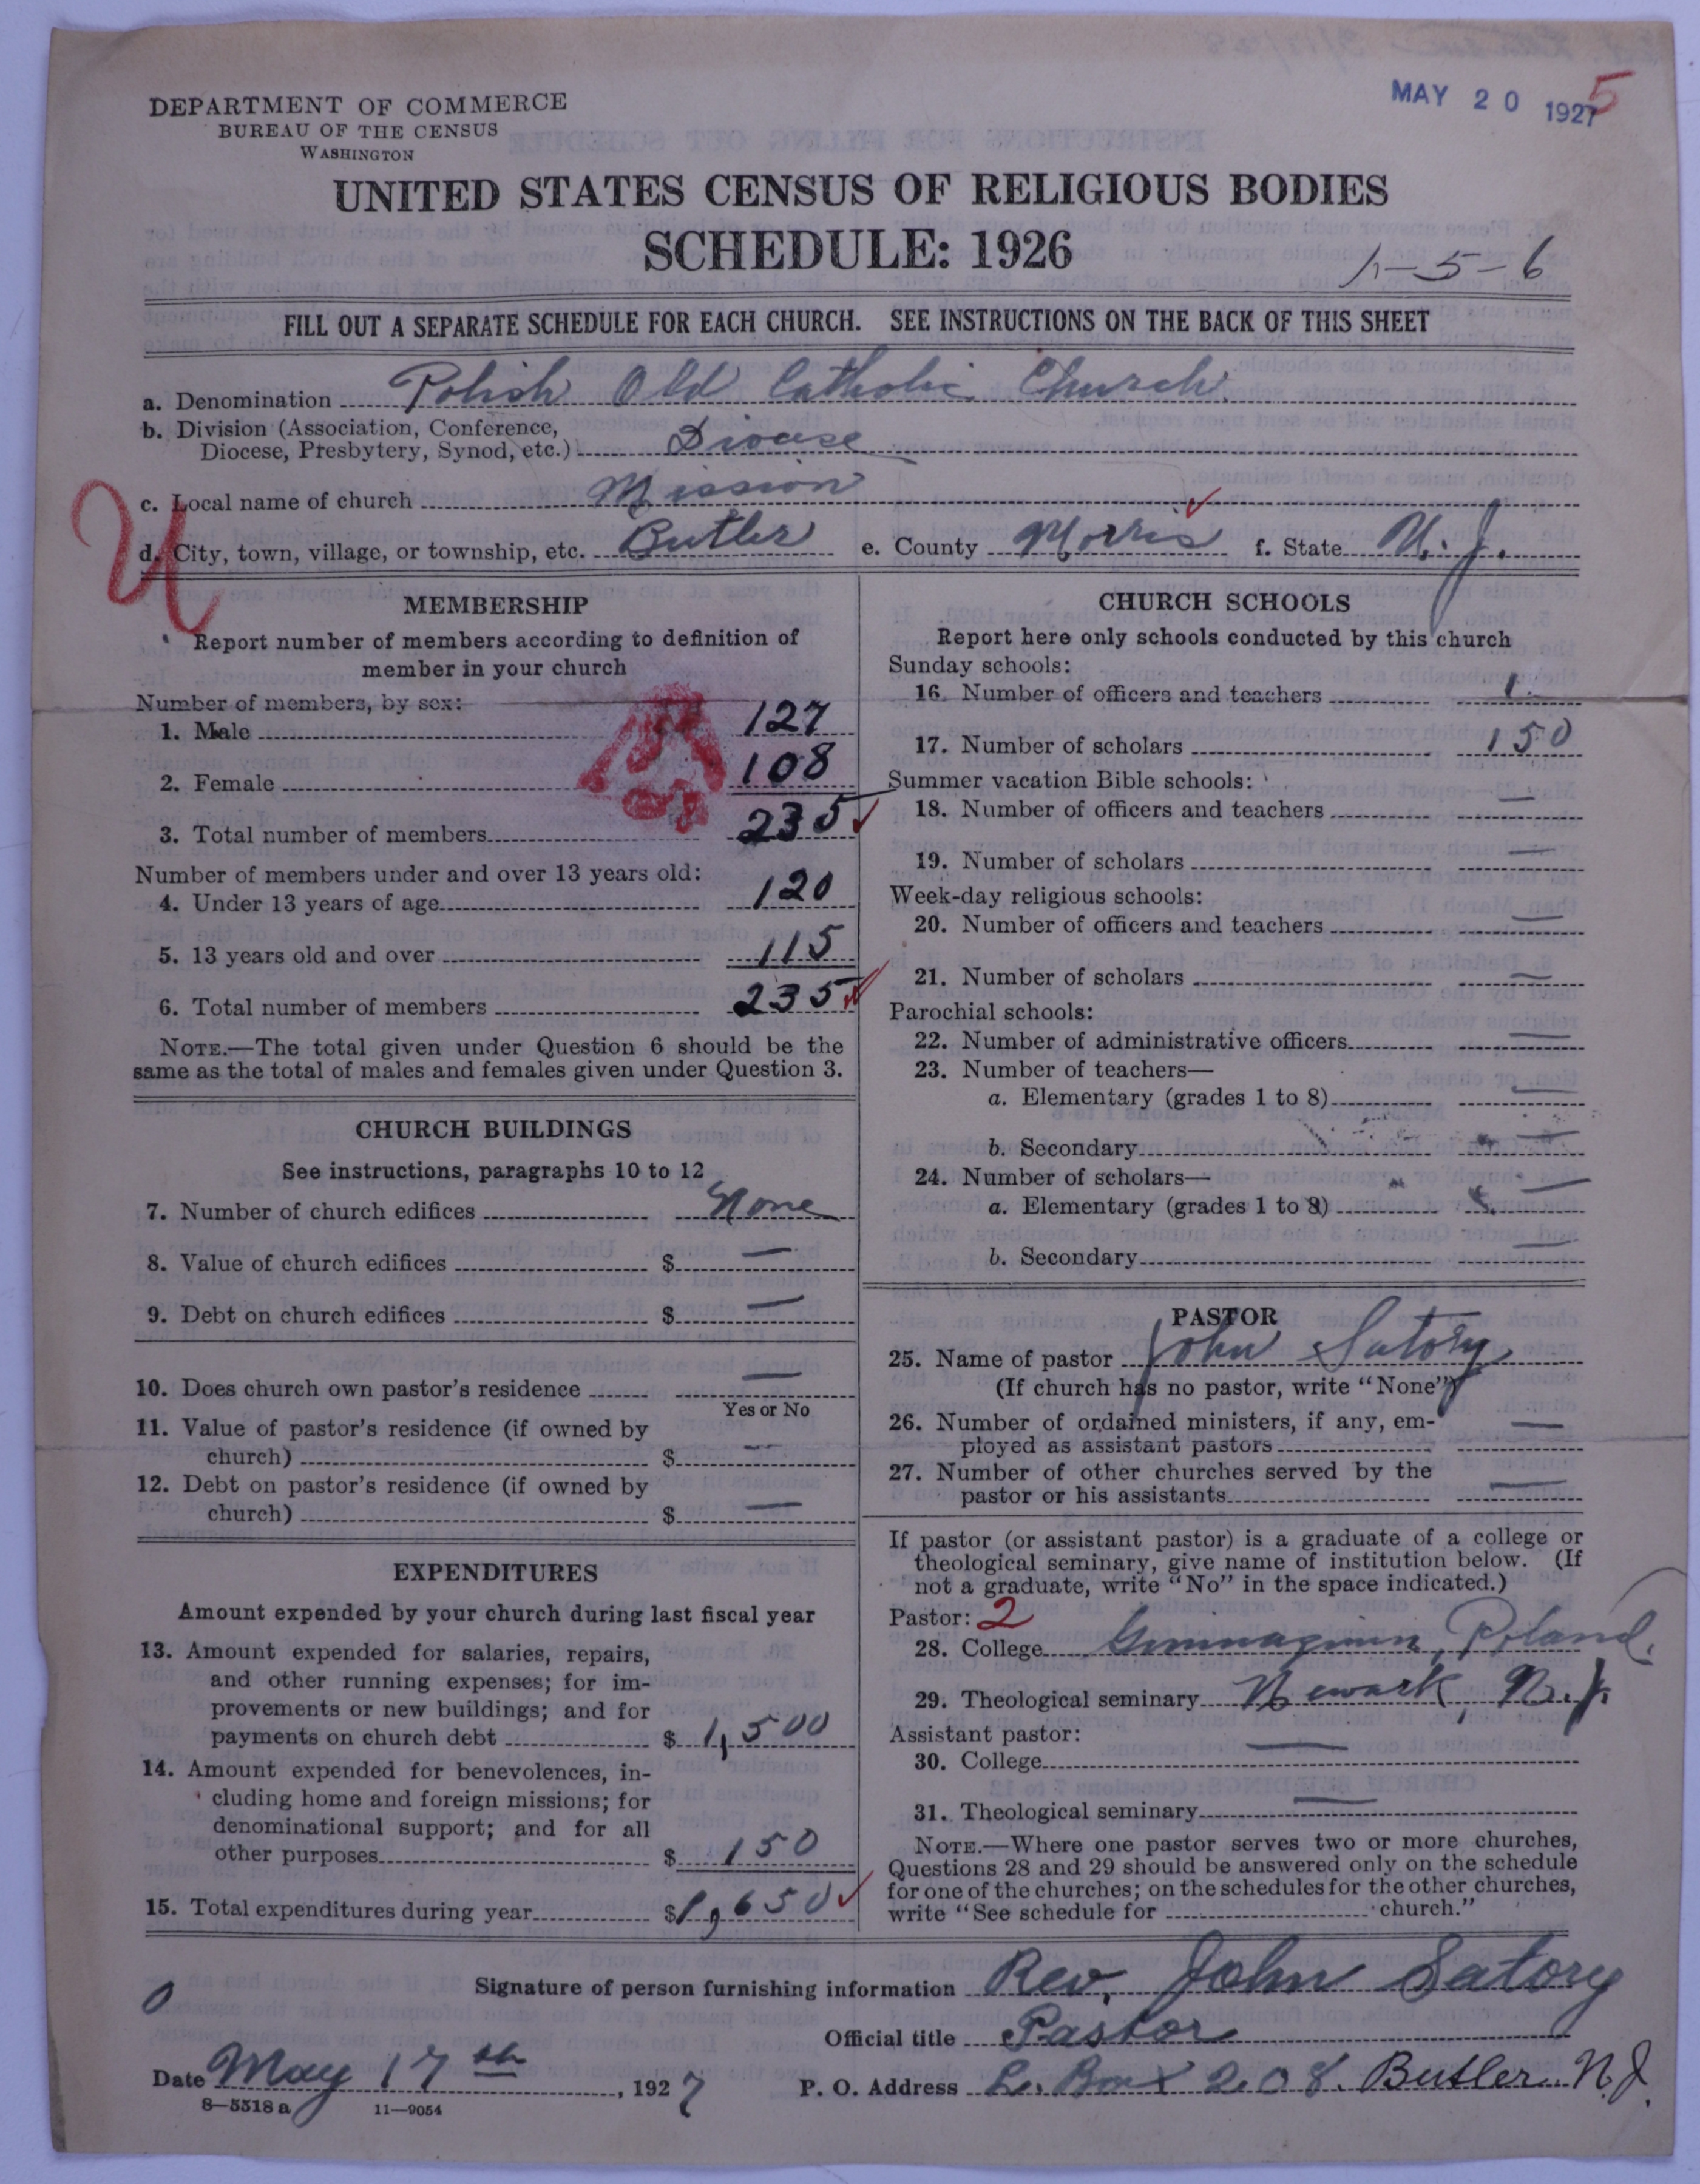 DEPARTMENT OF COMMERCE
BUREAU OF THE CENSUS
WASHINGTON
MAY 20 1927
5
UNITED STATES CENSUS OF RELIGIOUS BODIES
SCHEDULE: 1926
1-5-6
FILL OUT A SEPARATE SCHEDULE FOR EACH CHURCH. SEE INSTRUCTIONS ON THE BACK OF THIS SHEET
a. Denomination Polish Old Catholic Church
b. Division (Association, Conference,
Diocese, Presbytery, Synod, etc.) Diocese
c. Local name of church Mission
d. City, town, village, or township, etc. Butler e. County Morris f. State N. J.
U
MEMBERSHIP
Report number of members according to definition of
member in your church
Number of members, by sex:
1. Male 127
2. Female 108
3. Total number of members 235
Number of members under and over 13 years old:
4. Under 13 years of age 120
5. 13 years old and over 115
6. Total number of members 235
NOTE.—The total given under Question 6 should be the
same as the total of males and females given under Question 3.
CHURCH BUILDINGS
See instructions, paragraphs 10 to 12
7. Number of church edifices None
8. Value of church edifices $ —
9. Debt on church edifices $ —
10. Does church own pastor's residence —
Yes or No
11. Value of pastor's residence (if owned by
church) $ —
12. Debt on pastor's residence (if owned by
church) $ —
EXPENDITURES
Amount expended by your church during last fiscal year
13. Amount expended for salaries, repairs,
and other running expenses; for im-
provements or new buildings; and for
payments on church debt $ 1,500
14. Amount expended for benevolences, in-
cluding home and foreign missions; for
denominational support; and for all
other purposes $ 150
15. Total expenditures during year $1,650
CHURCH SCHOOLS
Report here only schools conducted by this church
Sunday schools:
16. Number of officers and teachers 1.
17. Number of scholars 150
Summer vacation Bible schools:
18. Number of officers and teachers —
19. Number of scholars —
Week-day religious schools:
20. Number of officers and teachers —
21. Number of scholars —
Parochial schools:
22. Number of administrative officers —
23. Number of teachers—
a. Elementary (grades 1 to 8) —
b. Secondary —
24. Number of scholars—
a. Elementary (grades 1 to 8) —
b. Secondary —
PASTOR
25. Name of pastor John Satory
(If church has no pastor, write "None")
26. Number of ordained ministers, if any, em-
ployed as assistant pastors —
27. Number of other churches served by the
pastor or his assistants —
If pastor (or assistant pastor) is a graduate of a college or
theological seminary, give name of institution below. (If
not a graduate, write "No" in the space indicated.)
Pastor: 2
28. College Poland.
29. Theological seminary Newark, N. J.
Assistant pastor:
30. College —
31. Theological seminary —
NOTE.—Where one pastor serves two or more churches,
Questions 28 and 29 should be answered only on the schedule
for one of the churches; on the schedules for the other churches,
write "See schedule for church."
0
Signature of person furnishing information Rev. John Satory
Official title Pastor
Date May 17th, 1927
P. O. Address L. Box 208. Butler N. J.
8—5518 a 11—9054